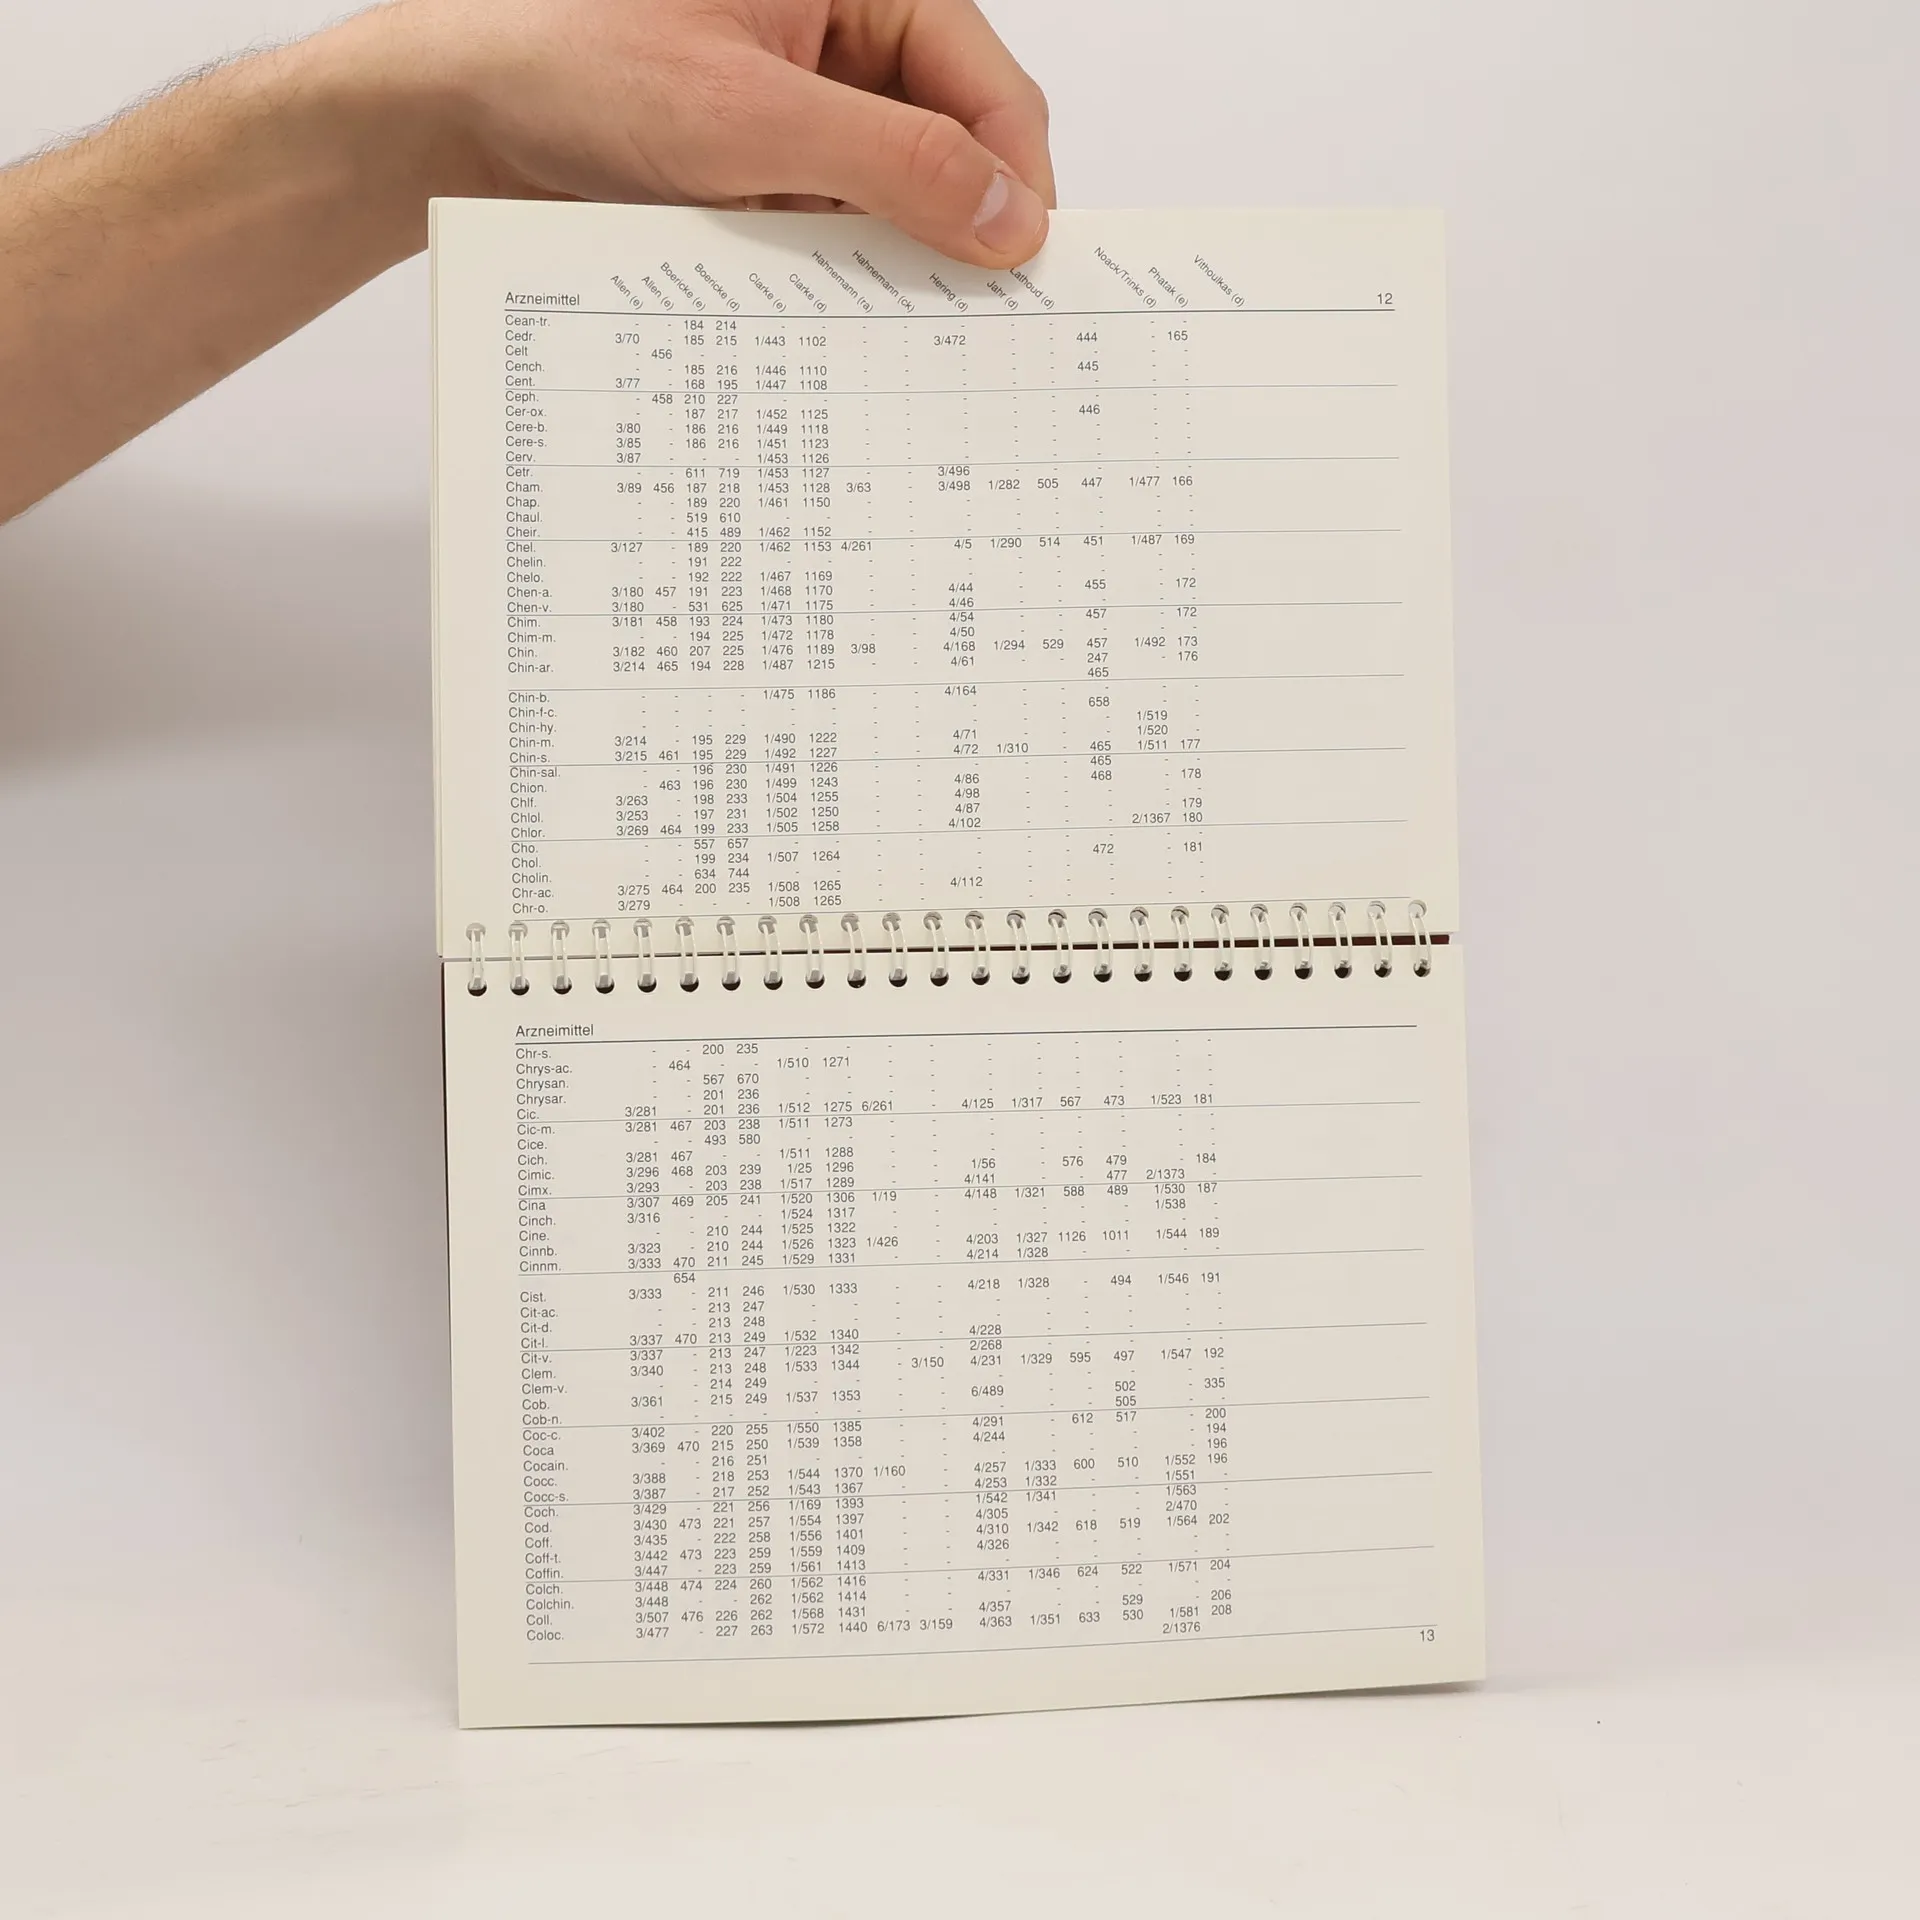 Arzneimittel Allen (e) Allen (e) Boericke (e) Boericke (d) Clarke (e) Clarke (d) Hahnemann (ra) Hahnemann (ck) Hering (d) Jahr (d) Lathoud (d) Noack/Trinks (d) Phatak (e) Vithoulkas (d) 12
Cean-tr. - - 184 214 - - - - - - - - - -
Cedr. 3/70 - 185 215 1/443 1102 - - 3/472 - - 444 - 165
Celt - 456 - - - - - - - - - - - -
Cench. - - 185 216 1/446 1110 - - - - - 445 - -
Cent. 3/77 - 168 195 1/447 1108 - - - - - - - -
Ceph. - 458 210 227 - - - - - - - - - -
Cer-ox. - - 187 217 1/452 1125 - - - - - 446 - -
Cere-b. 3/80 - 186 216 1/449 1118 - - - - - - - -
Cere-s. 3/85 - 186 216 1/451 1123 - - - - - - - -
Cerv. 3/87 - - - 1/453 1126 - - - - - - - -
Cetr. - - 611 719 1/453 1127 - - 3/496 - - - - -
Cham. 3/89 456 187 218 1/453 1128 3/63 - 3/498 1/282 505 447 1/477 166
Chap. - - 189 220 1/461 1150 - - - - - - - -
Chaul. - - 519 610 - - - - - - - - - -
Cheir. - - 415 489 1/462 1152 - - - - - - - -
Chel. 3/127 - 189 220 1/462 1153 4/261 - 4/5 1/290 514 451 1/487 169
Chelin. - - 191 222 - - - - - - - - - -
Chelo. - - 192 222 1/467 1169 - - - - - - - -
Chen-a. 3/180 457 191 223 1/468 1170 - - 4/44 - - 455 - 172
Chen-v. 3/180 - 531 625 1/471 1175 - - 4/46 - - - - -
Chim. 3/181 458 193 224 1/473 1180 - - 4/54 - - 457 - 172
Chim-m. - - 194 225 1/472 1178 - - 4/50 - - - - -
Chin. 3/182 460 207 225 1/476 1189 3/98 - 4/168 1/294 529 457 1/492 173
Chin-ar. 3/214 465 194 228 1/487 1215 - - 4/61 - - 247 - 176
465
Chin-b. - - - - 1/475 1186 - - 4/164 - - - - -
Chin-f-c. - - - - - - - - - - - 658 - -
Chin-hy. - - - - - - - - - - - - 1/519 -
Chin-m. 3/214 - 195 229 1/490 1222 - - 4/71 - - - 1/520 -
Chin-s. 3/215 461 195 229 1/492 1227 - - 4/72 1/310 - 465 1/511 177
Chin-sal. - - 196 230 1/491 1226 - - - - - 465 - -
Chion. - 463 196 230 1/499 1243 - - 4/86 - - 468 - 178
Chlf. 3/263 - 198 233 1/504 1255 - - 4/98 - - - - -
Chlol. 3/253 - 197 231 1/502 1250 - - 4/87 - - - - 179
Chlor. 3/269 464 199 233 1/505 1258 - - 4/102 - - - 2/1367 180
Cho. - - 557 657 - - - - - - - - - -
Chol. - - 199 234 1/507 1264 - - - - - 472 - 181
Cholin. - - 634 744 - - - - - - - - - -
Chr-ac. 3/275 464 200 235 1/508 1265 - - 4/112 - - - - -
Chr-o. 3/279 - - - 1/508 1265 - - - - - - - -
Arzneimittel
Chr-s. - - 200 235 - - - - - - - - - -
Chrys-ac. - 464 - - 1/510 1271 - - - - - - - -
Chrysan. - - 567 670 - - - - - - - - - -
Chrysar. - - 201 236 - - - - - - - - - -
Cic. 3/281 - 201 236 1/512 1275 6/261 - 4/125 1/317 567 473 1/523 181
Cic-m. 3/281 467 203 238 1/511 1273 - - - - - - - -
Cice. - - 493 580 - - - - - - - - - -
Cich. 3/281 467 - - 1/511 1288 - - - - - - - -
Cimic. 3/296 468 203 239 1/25 1296 - - 1/56 - 576 479 - 184
Cimx. 3/293 - 203 238 1/517 1289 - - 4/141 - - 477 2/1373 -
Cina 3/307 469 205 241 1/520 1306 1/19 - 4/148 1/321 588 489 1/530 187
Cinch. 3/316 - - - 1/524 1317 - - - - - - 1/538 -
Cine. - - 210 244 1/525 1322 - - - - - - - -
Cinnb. 3/323 - 210 244 1/526 1323 1/426 - 4/203 1/327 1126 1011 1/544 189
Cinnm. 3/333 470 211 245 1/529 1331 - - 4/214 1/328 - - - -
654
Cist. 3/333 - 211 246 1/530 1333 - - 4/218 1/328 - 494 1/546 191
Cit-ac. - - 213 247 - - - - - - - - - -
Cit-d. - - 213 248 - - - - - - - - - -
Cit-l. 3/337 470 213 249 1/532 1340 - - 4/228 - - - - -
Cit-v. 3/337 - 213 247 1/223 1342 - - 2/268 - - - - -
Clem. 3/340 - 213 248 1/533 1344 - 3/150 4/231 1/329 595 497 1/547 192
Clem-v. - - 214 249 - - - - - - - - - -
Cob. 3/361 - 215 249 1/537 1353 - - 6/489 - - 502 - 335
Cob-n. - - - - - - - - - - - 505 - -
Coc-c. 3/402 - 220 255 1/550 1385 - - 4/291 - 612 517 - 200
Coca 3/369 470 215 250 1/539 1358 - - 4/244 - - - - 194
Cocain. - - 216 251 - - - - - - - - - 196
Cocc. 3/388 - 218 253 1/544 1370 1/160 - 4/257 1/333 600 510 1/552 196
Cocc-s. 3/387 - 217 252 1/543 1367 - - 4/253 1/332 - - 1/551 -
Coch. 3/429 - 221 256 1/169 1393 - - 1/542 1/341 - - 1/563 -
Cod. 3/430 473 221 257 1/554 1397 - - 4/305 - - - 2/470 -
Coff. 3/435 - 222 258 1/556 1401 - - 4/310 1/342 618 519 1/564 202
Coff-t. 3/442 473 223 259 1/559 1409 - - 4/326 - - - - -
Coffin. 3/447 - 223 259 1/561 1413 - - - - - - - -
Colch. 3/448 474 224 260 1/562 1416 - - 4/331 1/346 624 522 1/571 204
Colchin. 3/448 - - 262 1/562 1414 - - - - - - - -
Coll. 3/507 476 226 262 1/568 1431 - - 4/357 - - 529 - 206
Coloc. 3/477 - 227 263 1/572 1440 6/173 3/159 4/363 1/351 633 530 1/581 208
2/1376
13